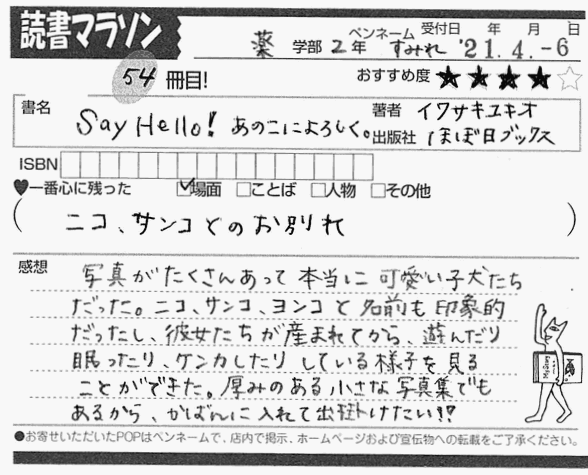 読書マラソン
薬 学部 2年 ペンネーム すみれ 受付日 年 月 日 '21.4.-6
54 冊目!
おすすめ度 ★★★★☆
書名 Say Hello! あのこによろしく。
著者 イワサキユキオ
出版社 ほぼ日ブックス
ISBN
♥一番心に残った ☑場面 □ことば □人物 □その他
(ニコ、サンコとのお別れ)
感想
写真がたくさんあって本当に可愛い子犬たち
だった。ニコ、サンコ、ヨンコと名前も印象的
だったし、彼女たちが産まれてから、遊んだり
眠ったり、ケンカしたりしている様子を見る
ことができた。厚みのある小さな写真集でも
あるから、かばんに入れて出かけたい!?
●お寄せいただいたPOPはペンネームで、店内で掲示、ホームページおよび宣伝物への転載をご了承ください。